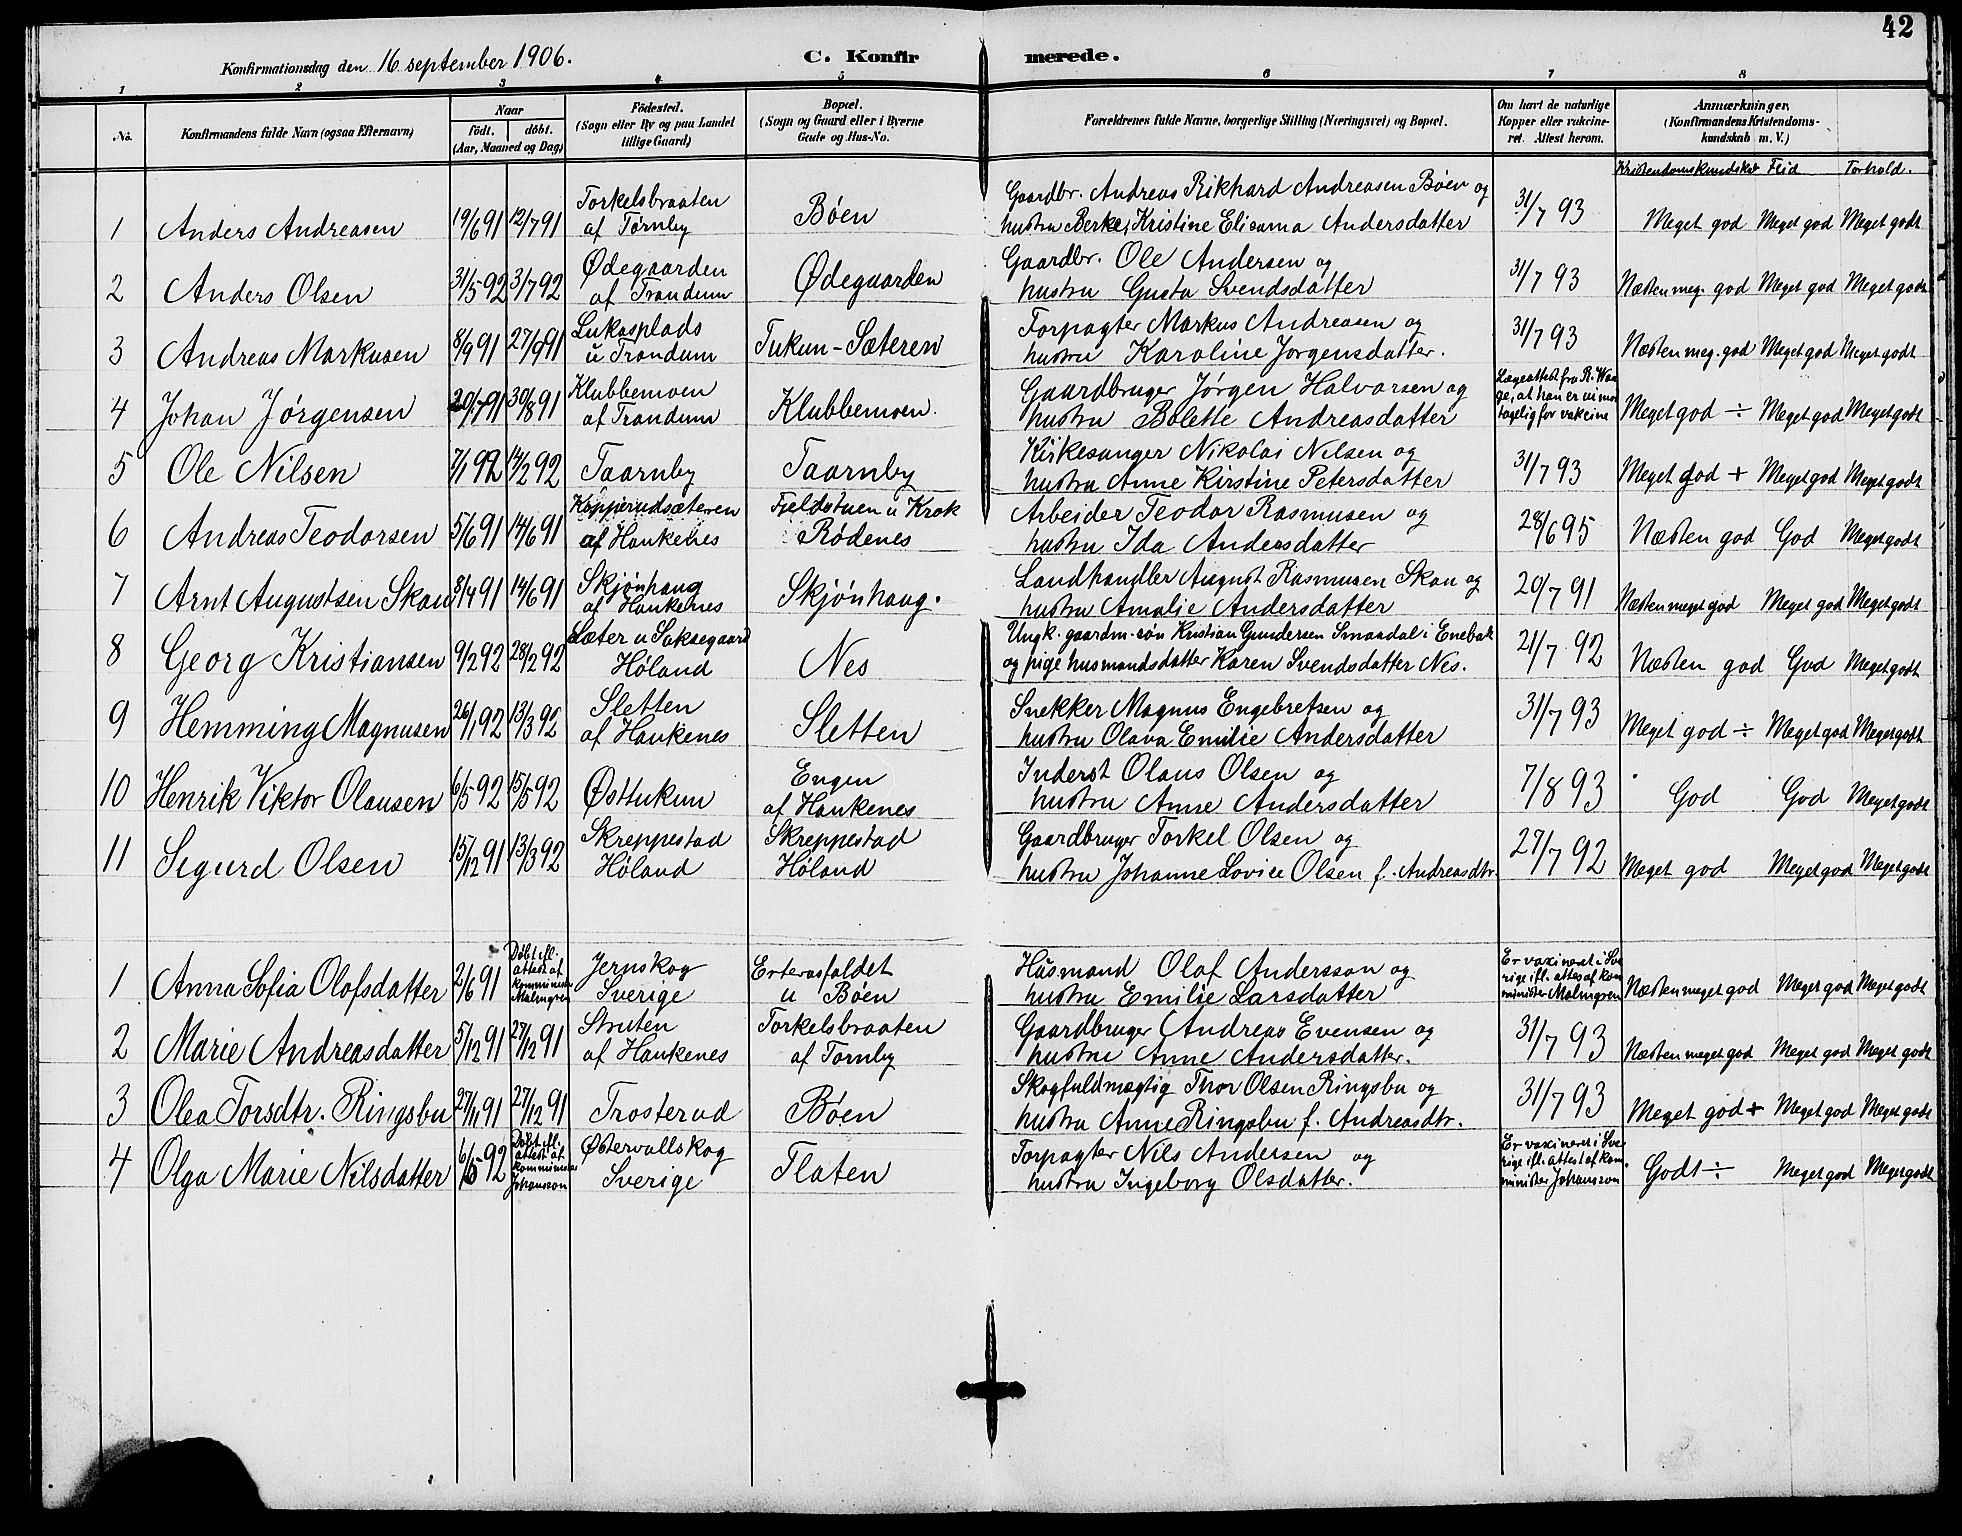 42
Konfirmationsdag den 16 september 1906. C. Konfirmerede.
1 2 3 4 5 6 7 8
No. Konfirmandens fulde Navn (ogsaa Efternavn) Naar født. døbt. (Aar, Maaned og Dag) Födested. (Sogn eller By og paa Landet tillige Gaard) Bopæl. (Sogn og Gaard eller i Byerne Gade og Hus-No. Forældrenes fulde Navne, borgerlige Stilling (Næringsvei) og Bopæl. Om havt de naturlige Kopper eller vakcineret. Attest herom. Anmærkninger, (Konfirmandens Kristendomskundskab m. V.)
Kristendomskundskab Flid Forhold.
1 Anders Andreasen 19/6 91 12/7 91 Torkelsbraaten af Tørnby Bøen Gaardbr. Andreas Rikhard Andreasen Bøen og hustru Kristine Elisama Andersdatter 31/7 93 Meget god Meget god Meget godt
2 Anders Olsen 31/5 92 3/7 92 Ødegaarden af Trandum Ødegaarden Gaardbr. Ole Andersen og hustru Gusta Svendsdatter 31/7 93 Næsten meg. god Meget god Meget godt
3 Andreas Markusen 8/9 91 27/9 91 Lukasplads u Trandum Tukun-Sæteren Forpagter Markus Andreasen og hustru Karoline Jørgensdatter. 31/7 93 Næsten meg. god Meget god Meget godt
4 Johan Jørgensen 20/7 91 30/8 91 Klubbemoen af Trandum Klubbemoen. Gaardbruger Jørgen Halvorsen og hustru Bolette Andreasdatter Lægeattest fra R. Wange, at han er uimotagelig for vakcine Meget god ÷ Meget god Meget godt
5 Ole Nilsen 7/1 92 14/2 92 Taarnby Taarnby Kirkesanger Nikolai Nilsen og hustru Anne Kirstine Petersdatter 31/7 93 Meget god + Meget god Meget godt
6 Andreas Teodorsen 5/6 91 14/6 91 Kopperudsæteren af Hankenes Fjeldstuen u Krok Rødenes Arbeider Teodor Rasmusen og hustru Ida Andersdatter 28/6 95 Næsten god God Meget godt
7 Arnt Augustsen Skau 8/4 91 14/6 91 Skjønhaug af Hankenes Skjønhaug. Landhandler August Rasmusen Skau og hustru Amalie Andersdatter 20/7 91 Næsten meget god Meget god Meget godt
8 Georg Kristiansen 9/2 92 28/2 92 Sæter u Saksegaard Høland Nes Ungk. gaardm. søn Kristian Gundersen Smaadal i Enebak og pige husmandsdatter Karen Svendsdatter Nes. 21/7 92 Næsten god God Meget godt
9 Hemming Magnusen 26/1 92 13/3 92 Sletten af Hankenes Sletten Snekker Magnus Engebretsen og hustru Olava Emilie Andersdatter 31/7 93 Meget god ÷ Meget god Meget godt
10 Henrik Viktor Olausen 6/5 92 15/5 92 Østtukun Engen af Hankenes Inderst Olaus Olsen og hustru Anne Andersdatter 7/8 93 God God Meget godt
11 Sigurd Olsen 15/12 91 13/3 92 Skreppestad Høland Skreppestad Høland Gaardbruger Torkel Olsen og hustru Johanne Lovise Olsen f. Andreasdtr. 27/7 92 Meget god Meget god Meget godt
1 Anna Sofia Olofsdatter 2/6 91 Døbt ifl. attest af komminister Malmgren Jernskog Sverige Esterasfaldet u Bøen Husmand Olof Andersson og hustru Emilie Larsdatter Er vaxineret i Sverige ifl. attest af komminister Malmgren Næsten meget god Meget god Meget godt
2 Marie Andreasdatter 5/12 91 27/12 91 Struten af Hankenes Torkelsbraaten af Tornby Gaardbruger Andreas Evensen og hustru Anne Andersdatter. 31/7 93 Næsten meget god Meget god Meget godt
3 Olea Torsdtr. Ringsbu 27/11 91 27/12 91 Trosterud Bøen Skogfuldmægtig Thor Olsen Ringsbu og hustru Anne Ringsbu f. Andreasdtr. 31/7 93 Meget god + Meget god Meget godt
4 Olga Marie Nilsdatter 6/5 92 Døbt ifl. attest af komminister Johansson Østervallskog Sverige Flaten Forpagter Nils Andersen og hustru Ingeborg Olsdatter. Er vaxineret i Sverige ifl. attest af komminister Johansson Godt ÷ Meget god Meget godt